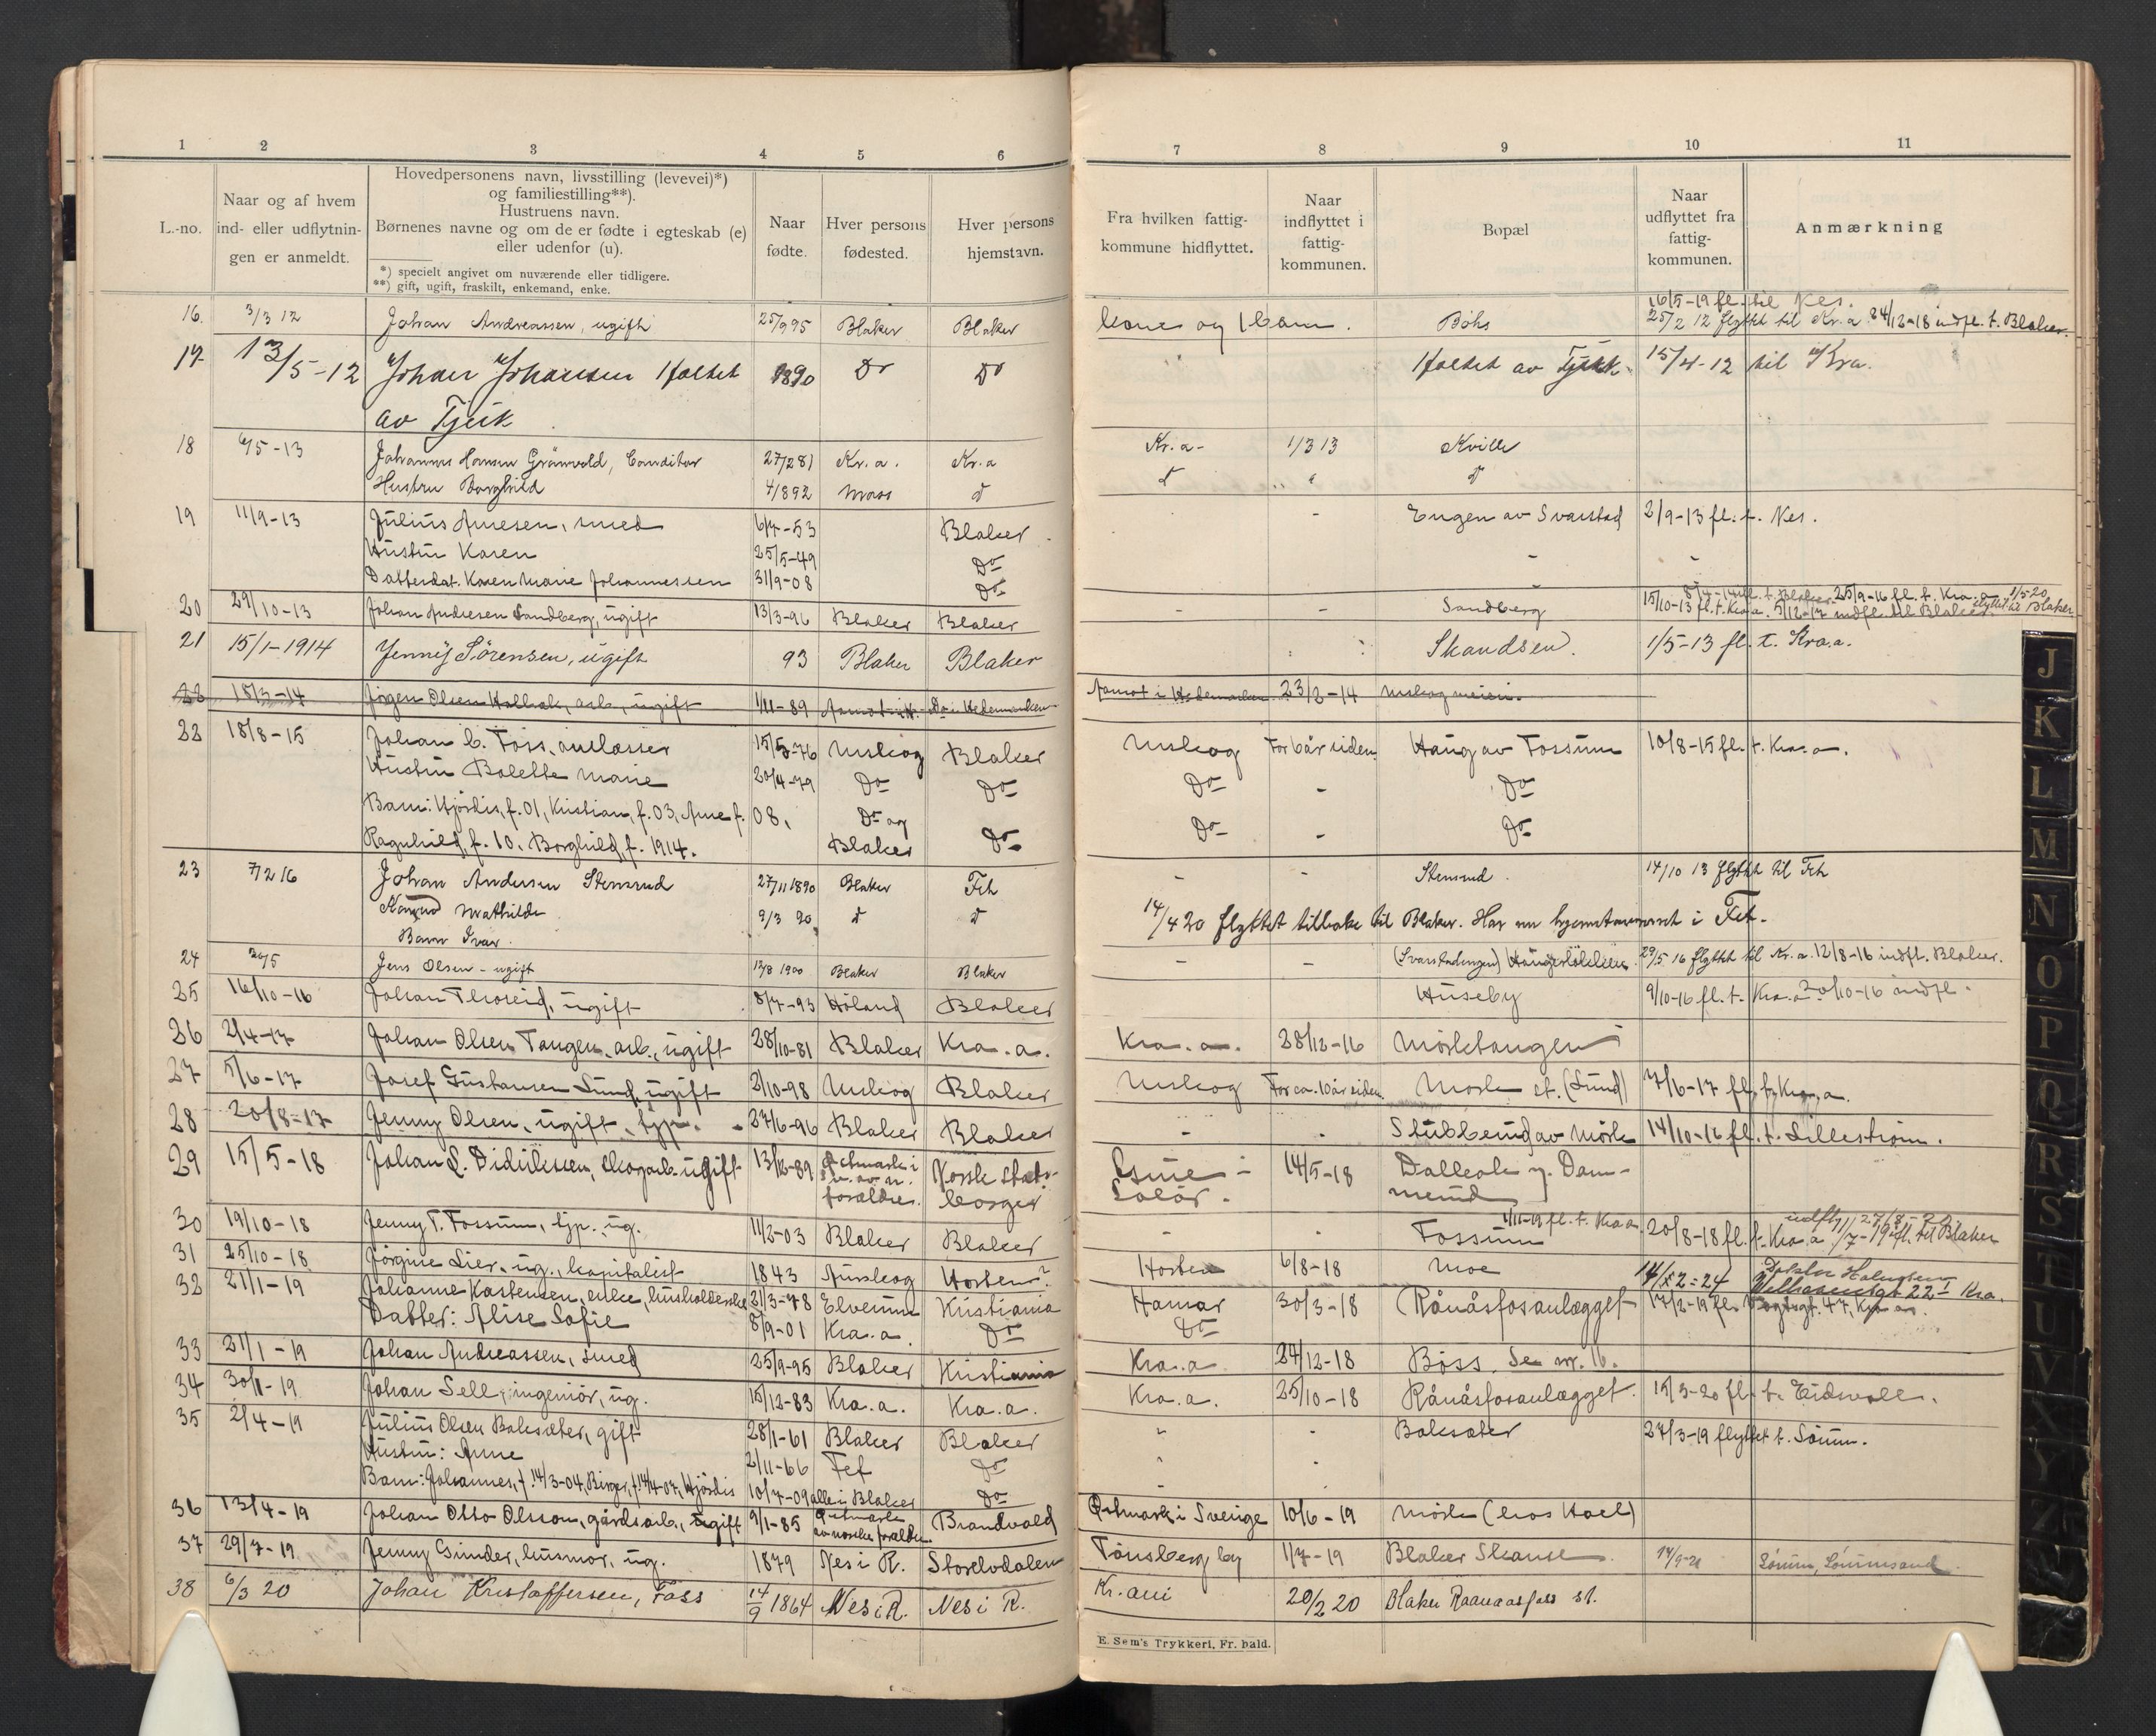 1 2 3 4 5 6 7 8 9 10 11
L.-no.
Naar og af hvem
ind- eller udflytnin-
gen er anmeldt.
Hovedpersonens navn, livsstilling (levevei)*)
og familiestilling**).
Hustruens navn.
Børnenes navne og om de er fødte i egteskab (e)
eller udenfor (u).
*) specielt angivet om nuværende eller tidligere.
**) gift, ugift, fraskilt, enkemand, enke.
Naar
fødte.
Hver persons
fødested.
Hver persons
hjemstavn.
Fra hvilken fattig-
kommune hidflyttet.
Naar
indflyttet i
fattig-
kommunen.
Bopæl
Naar
udflyttet fra
fattig-
kommunen.
Anmærkning
16/5-19 fl. til Nes.
16. 3/3 12 Johan Andreassen, ugift 25/9 95 Blaker Blaker kone og 1 barn. Böhs 25/2 12 flyttet til Kr.a. 24/12-18 indfl. t. Blaker.
17. 13/5-12 Johan Johansen Ifaltet 1890 Do Do Ifaltet av 15/4-12 til Kra.
av
18 6/5-13 Johannes Hansen Grönvold, Conditor 27/2 81 Kr.a. Kr.a Kr.a- 1/3 13 Kville
Hustru Borghild 4/8 92 Moss d d " d
19 11/9-13 Julius Arnesen, smed 6/7-53 Blaker - Engen av Svarstad 2/9-13 fl. t. Nes.
Hustru Karen 25/5-49 Do - -
Datterdat. Karen Marie Johannessen 31/9-08 Do
8/4-14 fl. t. Blaker 25/9-16 fl. t. Kra.a 1/5 20
20 29/10-13 Johan Andresen Sandberg, ugift 13/3-96 Blaker Blaker - - Sandberg 15/10-13 fl. t. Kra.a. 5/12-17 indfl. til Blaker flyttet til Blaker
21 15/1-1914 Jenny Sörensen, ugift 93 Blaker Blaker Skandsen. 1/5-13 fl. t. Kra.a.
22 18/3-14 Jörgen Olsen Holbak, arb., ugift 1/11-89 Aamot i H. Do i Hedemarken Aamot i Hedemarken 23/2-14 Urskog meieri.
22 18/8-15 Johan C. Foss, anlægser 15/5-76 Urskog Blaker Urskog For 6 år siden Haug av Fossum 10/8-15 fl. t. Kra.a.
Hustru Bolette Marie 20/4-79 Do Do Do - Do
Barn: Hjördis, f. 01, Kristian, f. 03, Arne f. 08, Do og Do - Do
Ragnhild, f. 10. Borghild, f. 1914. Blaker Do
23 7/2 16 Johan Andersen Stensrud 27/11 1890 Blaker Fet - - Stensrud. 14/10 13 flyttet til Fet
Mathilde 9/3 20 d d 14/4 20 flyttet tilbake til Blaker. Har nu hjemstavnsret i Fet.
Barn Ivar.
24 20/5 Jens Olsen - ugift 13/8 1900 Blaker Blaker - - (Svarstadengen) 29/5 16 flyttet til Kr.a. 12/8-16 indfl. Blaker.
25 16/10-16 Johan Thoreid, ugift 8/7-93 Höland Blaker Huseby 9/10-16 fl. t. Kra.a 30/10-16 indfl.
26 2/4-17 Johan Olsen Tangen, arb., ugift 28/10-81 Blaker Kra.a. Kra.a. 28/12-16 Mörktangen
27 5/6-17 Josef Gustavsen Lund, ugift 2/10-98 Urskog Blaker Urskog For ca. 10 år siden Mörk st. (Lund) 7/6-17 fl. t. Kra.a.
28 20/8-17 Jenny Olsen, ugift, tjp. 27/6-96 Blaker Blaker - - Stubberud av Mörk 14/10-16 fl. t. Lilleström.
29 15/5-18 Johan L. Didriksen, skogarb. ugift 13/12-89 Östmark i Norsk stats- 14/5-18 Dalbak y. Dam-
Sv. av n. forældre. borger Solör. merud
30 19/10-18 Jenny T. Fossum, tjp. ug. 11/2-03 Blaker Blaker - - Fossum 1/11-19 fl. t. Kra.a. 20/8-18 fl. t. Kra.a. 1/7-19 ifl. til Blaker
31 25/10-18 Jörgine Lier, ug., kapitalist 1843 Aurskog Horten? Horten 6/8-18 Moe
32 21/1-19 Johanne Karstensen, enke, husholderske 21/3-78 Elverum Kristiania Hamar 30/3-18 Rånåsfosanlægget 17/2-19 fl. Vogtsgt. 47, Kra.a.
Datter: Alise Sofie 8/9-01 Kra.a. Do Do
33 21/1-19 Johan Andreassen, smed 25/9-95 Blaker Kristiania Kra.a. 24/12-18 Böss. Se nr. 16.
34 30/1-19 Johan Sell, ingeniör, ug. 15/12-83 Kra.a. Kra.a. Kra.a. 25/10-18 Rånåsfosanlægget. 15/3-20 fl. t. Eidsvoll.
35 2/4-19 Julius Olsen Baksæter, gift 28/1-61 Blaker Blaker " - Baksæter 27/3-19 flyttet t. Sörum.
Hustru: Anne 2/11-66 Fet Do
Barn: Johannes, f. 14/3-04, Birger, f. 14/4-07, Hjördis 10/7-09 alle i Blaker Do
36 13/4-19 Johan Otto Olsson, gårdsarb., ugift 9/1-85 Östmark av norske forældre. Brandvold Östmark i Sverige 10/6-19 Mörk (hos Hoel)
37 29/7-19 Jenny Gunder, husmor, ug. 1879 Nes i R. Storelvdalen Tönsberg by 1/7-19 Blaker Skanse 14/9-21 Sörum, Sörumsand.
38 6/3 20 Johan Kristoffersen, Foss 14/9 1864 Nes i R. Nes i R. Kr.ani 20/2 20 Blaker Raanaasfoss st.
E. Sem's Trykkeri, Fr. hald.
J
K
L
M
N
O
P
Q
R
S
T
U
V
X
Y
Z